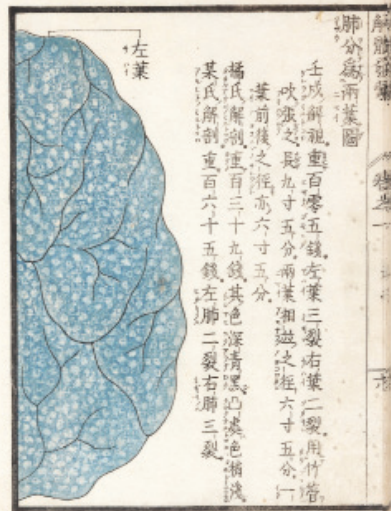 肺分爲兩葉圖
壬戌解視重百零五錢左葉三裂右葉二裂用竹管
吹張之長九寸五分兩葉相並之徑六寸五分一
葉前後之徑亦六寸五分
橘氏解剖重百三十九錢其色深青黑凸處色稍淺
某氏解剖重百六十五錢左肺二裂右肺三裂
左葉